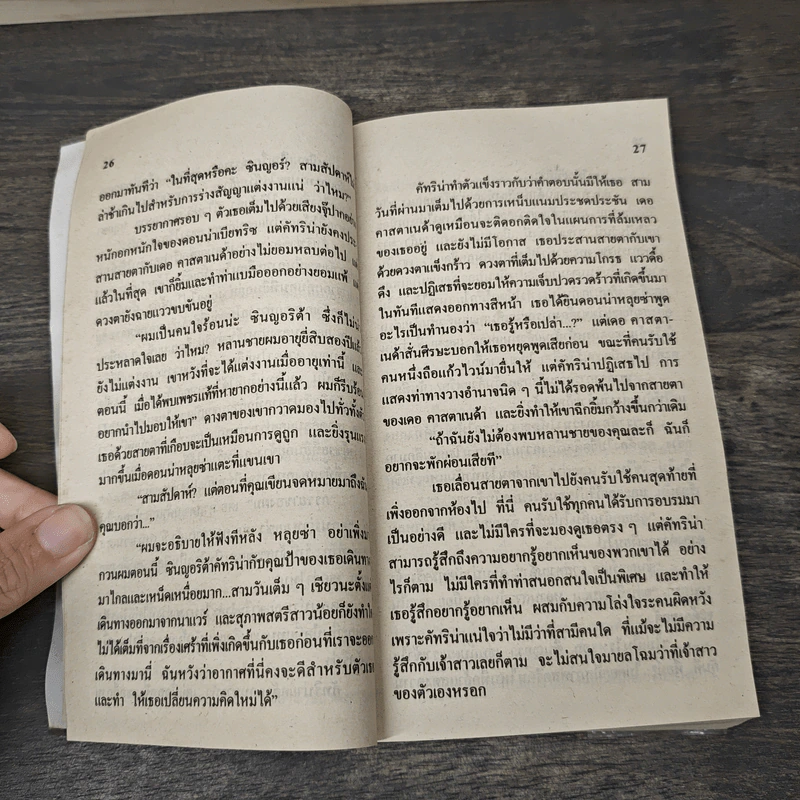 26
ออกมาทันทีว่า “ในที่สุดหรือคะ ซินญอร์? สามสัปดาห์
ล่าช้าเกินไปสำหรับการร่างสัญญาแต่งงานแน่ ว่าไหม?”
บรรยากาศรอบ ๆ ตัวเธอเต็มไปด้วยเสียงจู๊ปาก
หนักอกหนักใจของดอนน่าเบียทริซ แต่คัทริน่ายังคง
สานสายตากับเดอ คาสตาเนด้าอย่างไม่ยอมหลบต่อไป
แล้วในที่สุด เขาก็ยิ้มและทำท่าแบมือออกอย่างยอมแพ้
ดวงตายังฉายแววขบขันอยู่
“ผมเป็นคนใจร้อนน่ะ ซินญอริต้า ซึ่งก็ไม่
ประหลาดใจเลย ว่าไหม? หลานชายผมอายุยี่สิบสองปีแล้ว
ยังไม่แต่งงาน เขาหวังที่จะได้แต่งงานเมื่ออายุเท่านี้
ตอนนี้ เมื่อได้พบเพชรแท้ที่หายากอย่างนี้แล้ว ผมก็รีบร้อน
อยากนำไปมอบให้เขา” ดางตาของเขากวาดมองไปทั่วทั้ง
เธอด้วยสายตาที่เกือบจะเป็นเหมือนการดูถูก และยิ่งรุนแรง
มากขึ้นเมื่อดอนน่าหลุยซ่าแตะที่แขนเขา
“สามสัปดาห์? แต่ตอนที่คุณเขียนจดหมายมาถึง
คุณบอกว่า...”
“ผมจะอธิบายให้ฟังทีหลัง หลุยซ่า อย่าเพิ่ง
กวนผมตอนนี้ ซินญอริต้าคัทริน่ากับคุณป้าของเธอเดินทาง
มาไกลและเหน็ดเหนื่อยมาก...สามวันเต็ม ๆ เชียวนะตั้งแต่
เดินทางออกมาจากนาแวร์ และสุภาพสตรีสาวน้อยก็ยังทำใจ
ไม่ได้เต็มที่จากเรื่องเศร้าที่เพิ่งเกิดขึ้นกับเธอก่อนที่เราจะออก
เดินทางมานี่ ฉันหวังว่าอากาศที่นี่คงจะดีสำหรับตัวเธอ
และทำ ให้เธอเปลี่ยนความคิดใหม่ได้”
27
คัทริน่าทำตัวแข็งราวกับว่าคำตอบนั้นมีให้เธอ สาม
วันที่ผ่านมาเต็มไปด้วยการเหน็บแนมประชดประชัน เดอ
คาสตาเนด้าดูเหมือนจะติดอกติดใจในแผนการที่ล้มเหลว
ของเธออยู่ และยังไม่มีโอกาส เธอประสานสายตากับเขา
ด้วยดวงตาแข็งกร้าว ดวงตาที่เต็มไปด้วยความโกรธ แววดื้อ
ดึง และปฏิเสธที่จะยอมให้ความเจ็บปวดรวดร้าวที่เกิดขึ้นมา
ในทันทีแสดงออกทางสีหน้า เธอได้ยินดอนน่าหลุยซ่าพูด
อะไรเป็นทำนองว่า “เธอรู้หรือเปล่า...?” แต่เดอ คาสตา-
เนด้าสั่นศีรษะบอกให้เธอหยุดพูดเสียก่อน ขณะที่คนรับใช้
คนหนึ่งถือแก้วไวน์มายื่นให้ แต่คัทริน่าปฏิเสธไป การ
แสดงท่าทางวางอำนาจนิด ๆ นี้ไม่ได้รอดพ้นไปจากสายตา
ของเดอ คาสตาเนด้า และยิ่งทำให้เขาฉีกยิ้มกว้างขึ้นกว่าเดิม
“ถ้าฉันยังไม่ต้องพบหลานชายของคุณละก็ ฉันก็
อยากจะพักผ่อนเสียที”
เธอเลื่อนสายตาจากเขาไปยังคนรับใช้คนสุดท้ายที่
เพิ่งออกจากห้องไป ที่นี่ คนรับใช้ทุกคนได้รับการอบรมมา
เป็นอย่างดี และไม่มีใครที่จะมองดูเธอตรง ๆ แต่คัทริน่า
สามารถรู้สึกถึงความอยากรู้อยากเห็นของพวกเขาได้ อย่าง
ไรก็ตาม ไม่มีใครที่ทำท่าสนอกสนใจเป็นพิเศษ และทำให้
เธอรู้สึกอยากรู้อยากเห็น ผสมกับความโล่งใจระคนผิดหวัง
เพราะคัทริน่าแน่ใจว่าไม่มีว่าที่สามีคนใด ที่แม้จะไม่มีความ
รู้สึกกับเจ้าสาวเลยก็ตาม จะไม่สนใจมายลโฉมว่าที่เจ้าสาว
ของตัวเองหรอก